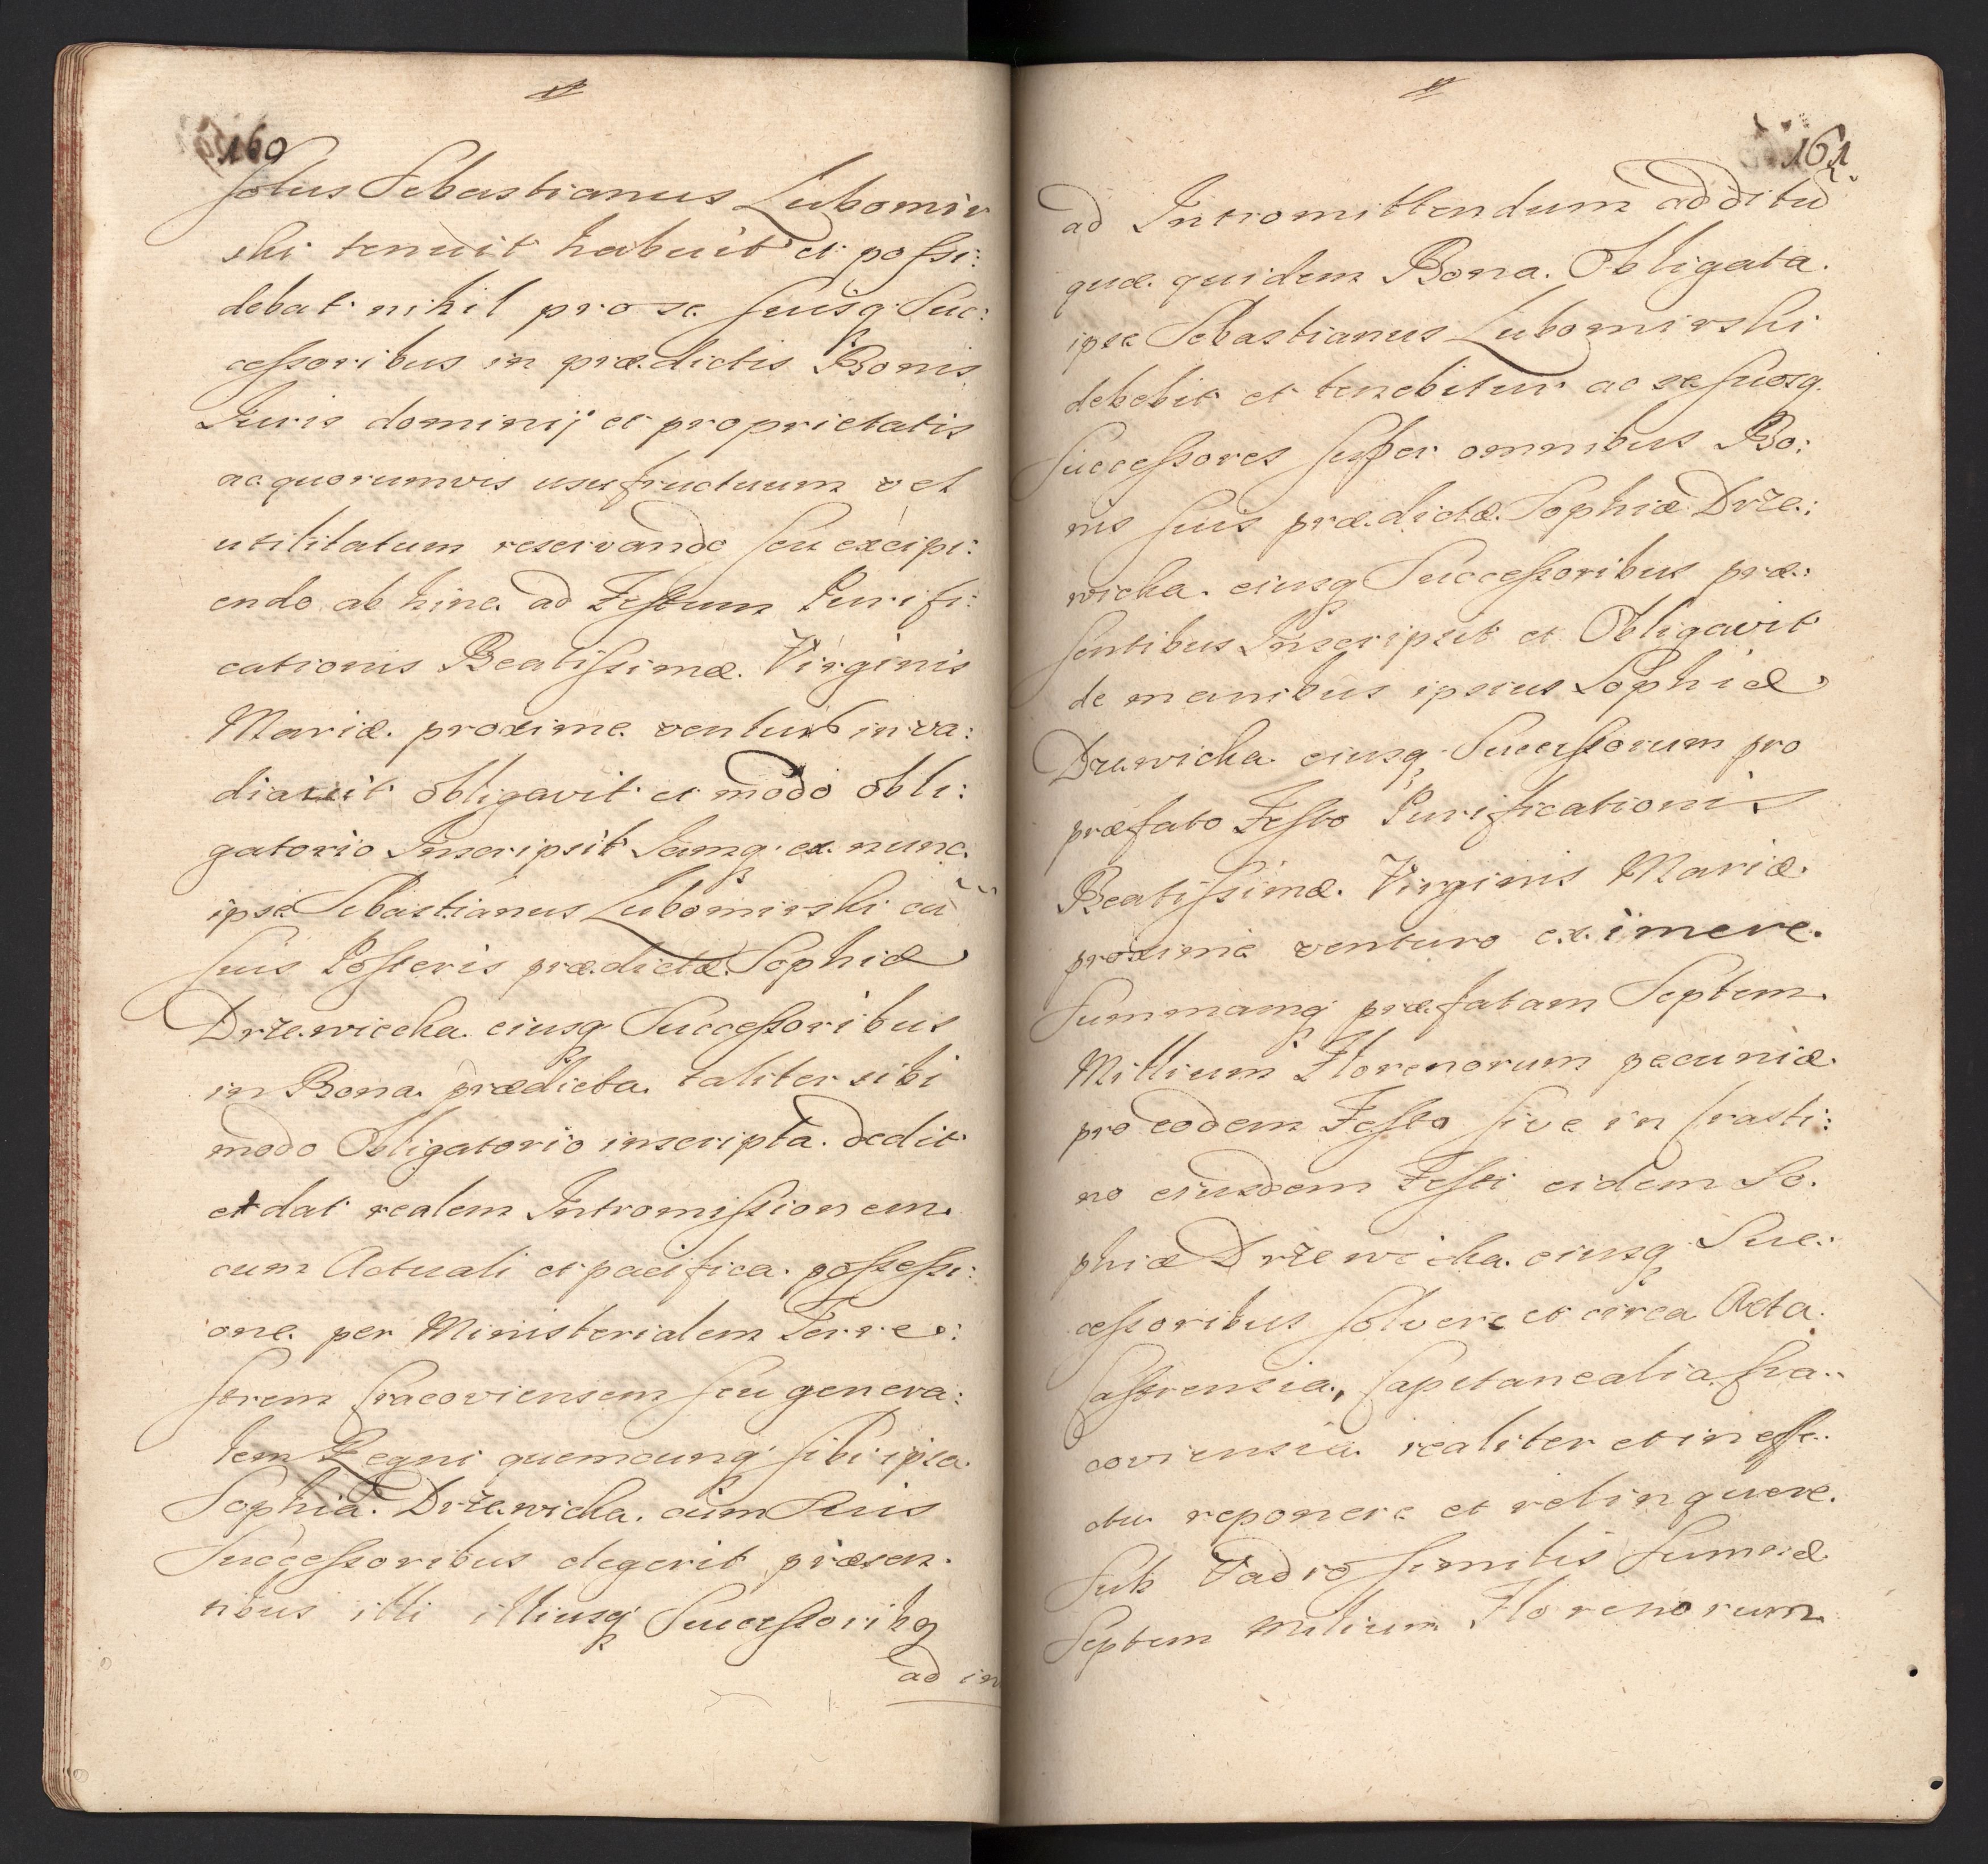 160
solus Sebastianus Lubomir
ski tenuit habuit et possi:
debat nihil pro se suisq Suc:
cessoribus in prædictis Bonis
Iuris dominij et proprietatis
ac quorumvis usufructuum vel
utilitatum reservando seu excipi:
endo ab hinc ad Festum Purifi:
cationis Beatissimæ Virginis
Mariæ proxime venturũ inva:
diavit obligavit et modo obli:
gatorio Inscripsit Iamq ex nunc
ipse Sebastianus Lubomirski cũ
suis Posteris prædictæ Sophiæ
Drzewiecka eiusq Successoribus
in Bona prædicta taliter sibi
modo Obligatorio inscripta dedit
et dat realem Intromissionem
cum Actuali et pacifica possessi:
one per Ministerialem Terre:
strem Cracoviensem seu genera:
lem Regni quemcunq sibi ipsa
Sophia Drzewicka cum Suis
Successoribus elegerit præsen:
tibus illi illiusq Successorib9
ad in
161
ad Intromittendum additũ
quæ quidem Bona Obligata
ipse Sebastianus Lubomirski
debebit et tenebitur ac se suosq
Successores super omnibus Bo:
nis suis prædictæ Sophiæ Drze:
wicka eiusq Successoribus præ:
sentibus Inscripsit et Obligavit
de manibus ipsius Sophiæ
Drzewicka eiusq Successorum pro
præfato Festo Purificationis
Beatissimæ Virginis Mariæ
proxime venturo eximere
Summamq præfatam Septem
Millium Florenorum pecuniæ
pro eodem Festo sive in Crasti:
no eiusdem Festi eidem So:
phiæ Drzewicka eiusq Suc:
cessoribus solvere et circa Acta
Castrensia, Capitanealia Cra:
coviensia realiter et in effe:
ctu reponere et relinquere
Sub Vadio similis Summæ
Septem Milium Florenorum